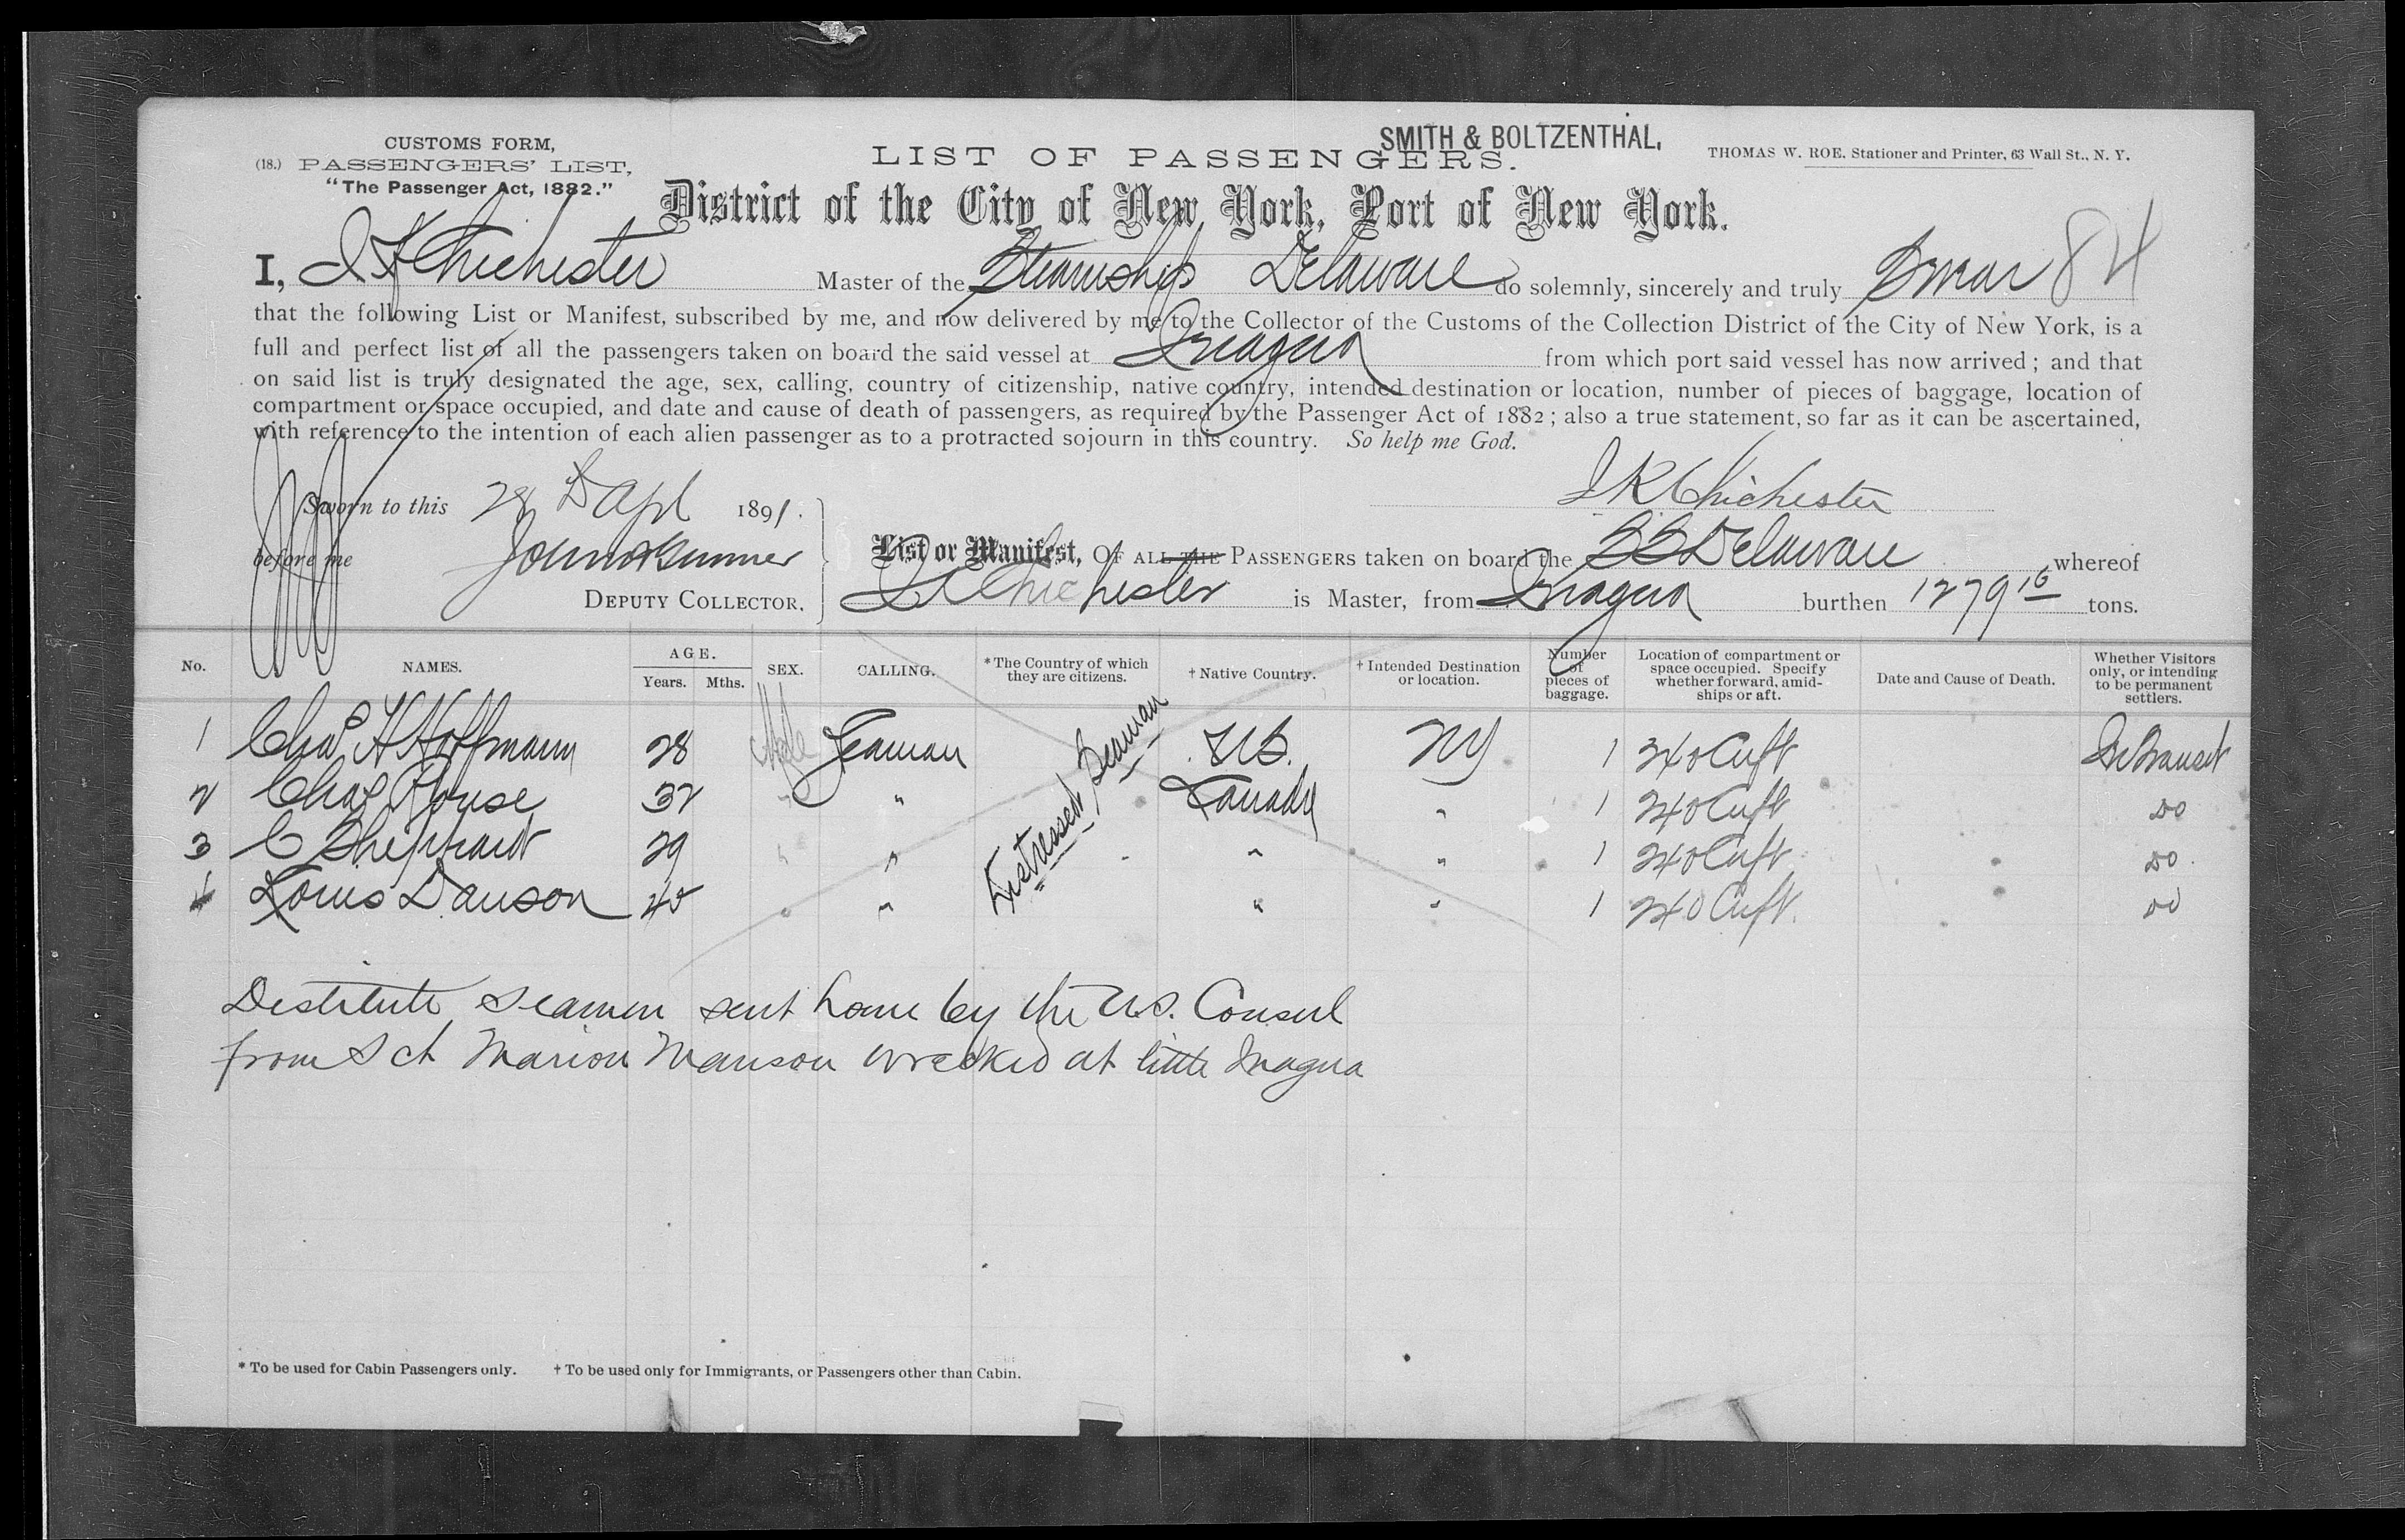 SMITH & BOLTZENTHAL,
CUSTOMS FORM,
(18.) PASSENGERS' LIST,
"The Passenger Act, 1882."
LIST OF PASSENGERS.
THOMAS W. ROE. Stationer and Printer, 63 Wall St., N. Y.
District of the City of New York, Port of New York.
84
I, Chichester Master of the Steamship Delaware do solemnly, sincerely and truly Swear
that the following List or Manifest, subscribed by me, and now delivered by me to the Collector of the Customs of the Collection District of the City of New York, is a
full and perfect list of all the passengers taken on board the said vessel at Inagua from which port said vessel has now arrived; and that
on said list is truly designated the age, sex, calling, country of citizenship, native country, intended destination or location, number of pieces of baggage, location of
compartment or space occupied, and date and cause of death of passengers, as required by the Passenger Act of 1882; also a true statement, so far as it can be ascertained,
with reference to the intention of each alien passenger as to a protracted sojourn in this country. So help me God.
Chichester
Sworn to this 28 D Apl 1891.
before me
DEPUTY COLLECTOR.
List or Manifest, OF ALL THE PASSENGERS taken on board the SS Delaware whereof
Chichester is Master, from Inagua burthen 1279 16 tons.
No. NAMES. AGE. Years. Mths. SEX. CALLING. *The Country of which they are citizens. †Native Country. †Intended Destination or location. Number of pieces of baggage. Location of compartment or space occupied. Specify whether forward, amidships or aft. Date and Cause of Death. Whether Visitors only, or intending to be permanent settlers.
1 Chas H Hoffmann 28 Male Seaman U.S. NY 1 240 Cuft In Transit
2 Chas Rouse 32 " " Canada " 1 240 Cuft do
3 C Sheppard 29 " " " " 1 240 Cuft do
4 Louis Dawson " " " " 1 240 Cuft. do
Distressed Seaman
Destitute seamen sent home by the U.S. Consul
from Sch Marion Manson wrecked at little Inagua
* To be used for Cabin Passengers only. † To be used only for Immigrants, or Passengers other than Cabin.